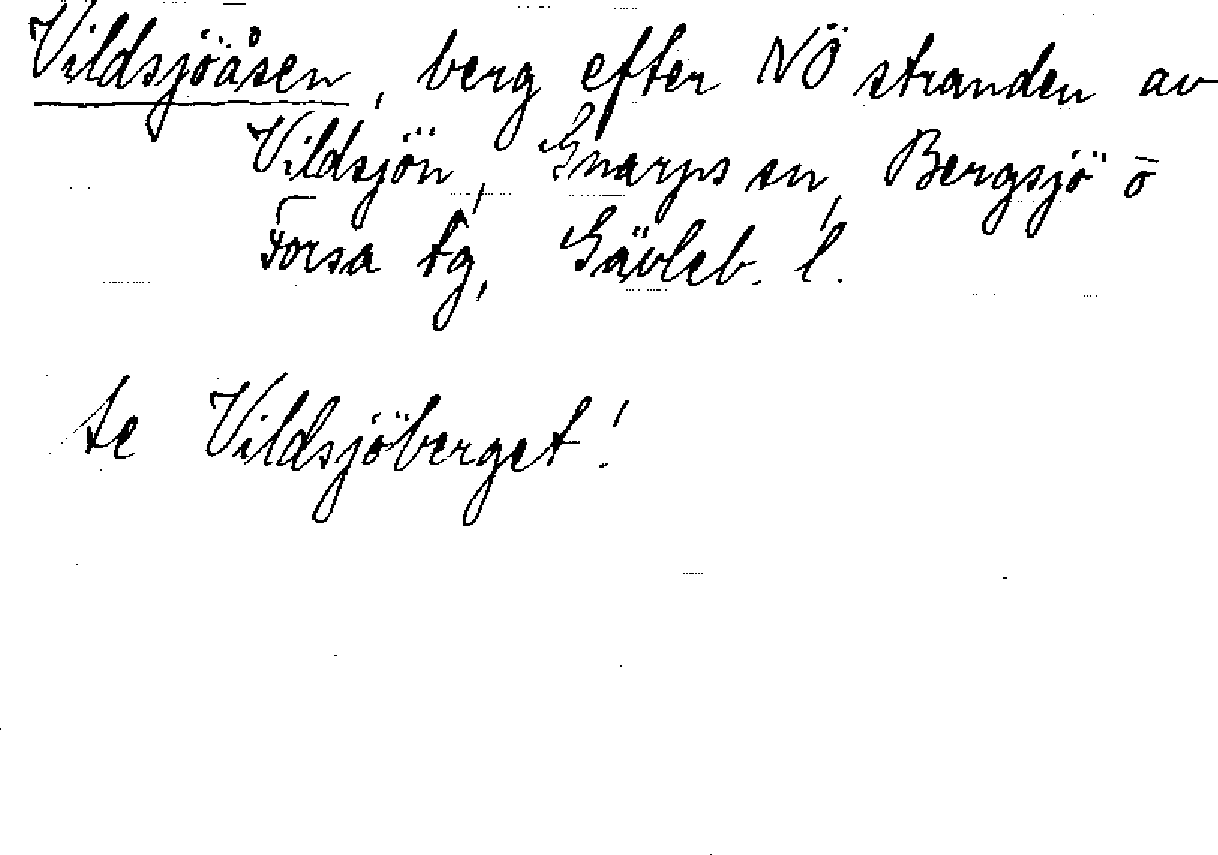 Vildsjöåsen, berg efter NÖ stranden av
Vildsjön, Gnarps sn, Bergsjö o
Forsa tg, Gävleb. l.
se Vildsjöberget!